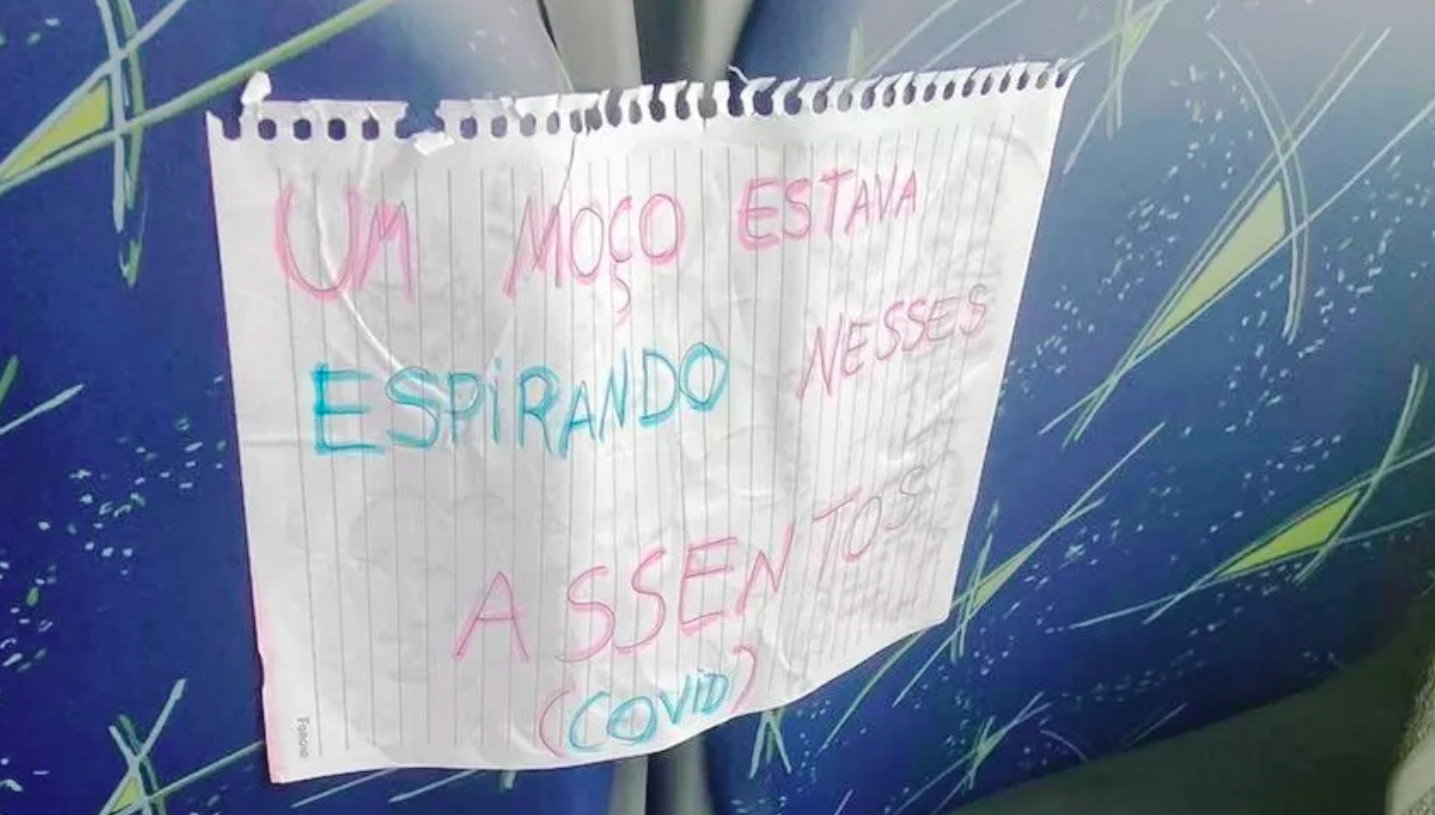 UM MOÇO ESTAVA
ESPIRANDO NESSES
ASSENTOS
(COVID)
Foroni